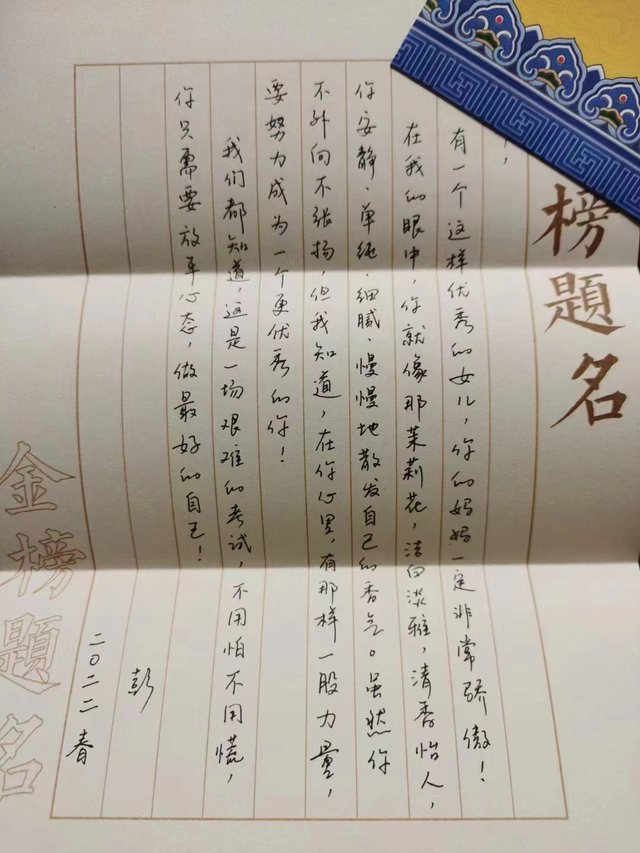 榜題名
！
有一个这样优秀的女儿，你的妈妈一定非常骄傲！
在我的眼中，你就像那茉莉花，洁白淡雅，清香怡人，
你安静、单纯、细腻、慢慢地散发自己的香气。虽然你
不外向不张扬，但我知道，在你心里，有那样一股力量，
要努力成为一个更优秀的你！
我们都知道，这是一场艰难的考试，不用怕不用慌，
你只需要放平心态，做最好的自己！
彭
二〇二二春
金榜題名